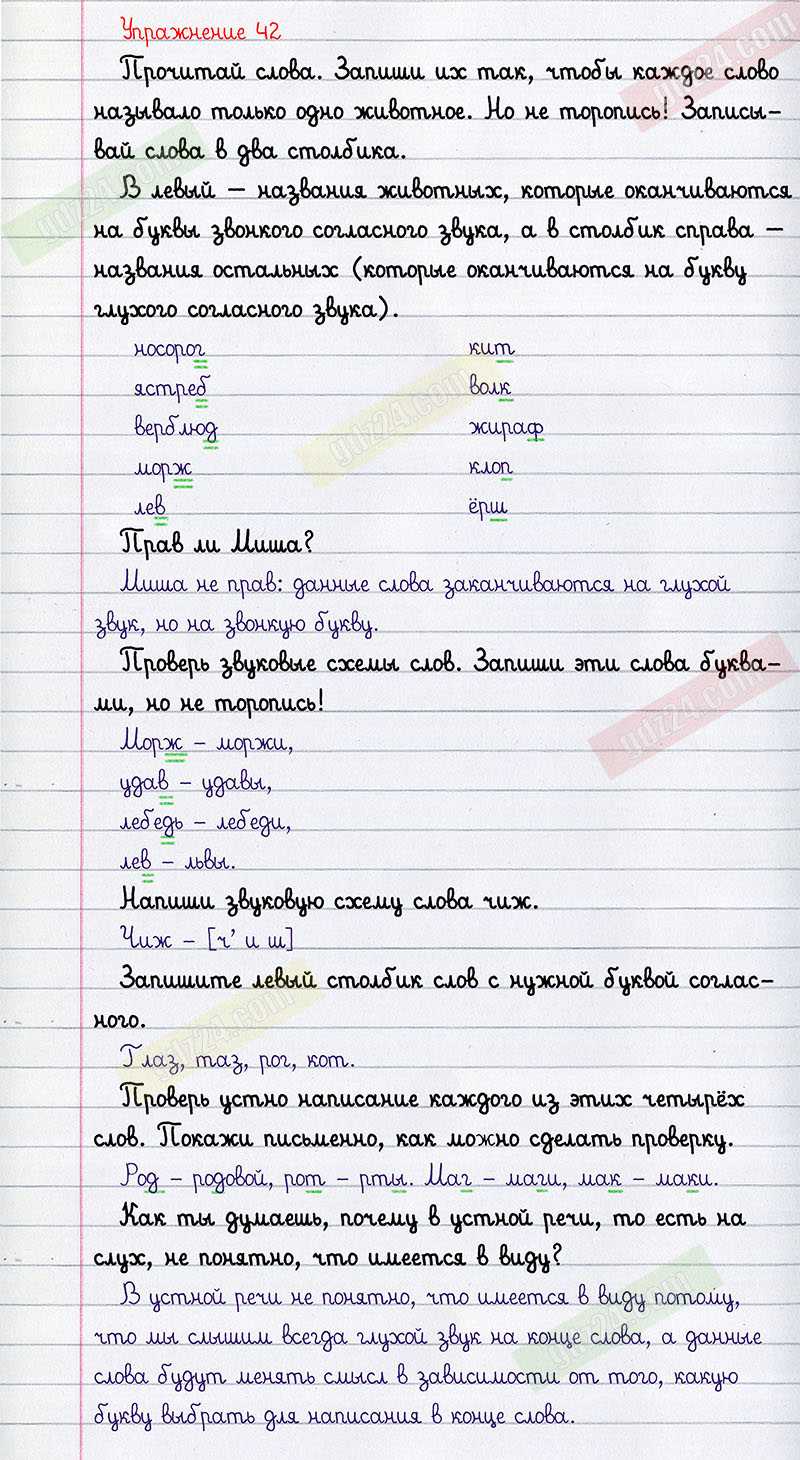 Упражнение 42
Прочитай слова. Запиши их так, чтобы каждое слово
называло только одно животное. Но не торопись! Записы-
вай слова в два столбика.
В левый – названия животных, которые оканчиваются
на буквы звонкого согласного звука, а в столбик справа –
названия остальных (которые оканчиваются на букву
глухого согласного звука).
носорог кит
ястреб волк
верблюд жираф
морж клоп
лев ёрш
Прав ли Миша?
Миша не прав: данные слова заканчиваются на глухой
звук, но на звонкую букву.
Проверь звуковые схемы слов. Запиши эти слова буква-
ми, но не торопись!
Морж – моржи,
удав – удавы,
лебедь – лебеди,
лев – львы.
Напиши звуковую схему слова чиж.
Чиж – [ч’ и ш]
Запишите левый столбик слов с нужной буквой соглас-
ного.
Глаз, таз, рог, кот.
Проверь устно написание каждого из этих четырёх
слов. Покажи письменно, как можно сделать проверку.
Род – родовой, рот – рты. Маг – маги, мак – маки.
Как ты думаешь, почему в устной речи, то есть на
слух, не понятно, что имеется в виду?
В устной речи не понятно, что имеется в виду потому,
что мы слышим всегда глухой звук на конце слова, а данные
слова будут менять смысл в зависимости от того, какую
букву выбрать для написания в конце слова.
gdz24.com
gdz24.com
gdz24.com
gdz24.com
gdz24.com
gdz24.com